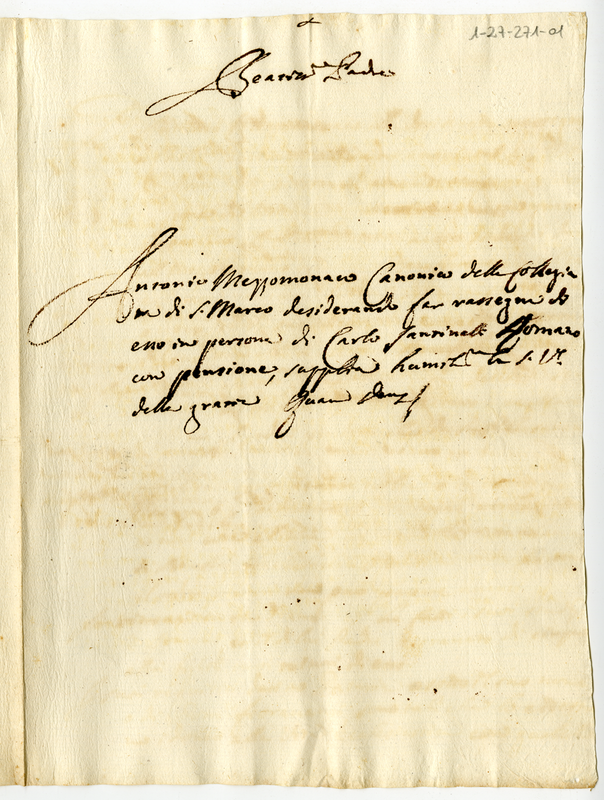 1-27-271-01
Beatiss.mo Padre
Antonio Mezzomonaco Canonico della Collegia
ta di S. Marco desiderando far rassegna di
esso in persona di Carlo Santinelli Romano
con pensione, supplica humilm.te la S. V.ra
della gratia Quam Deus